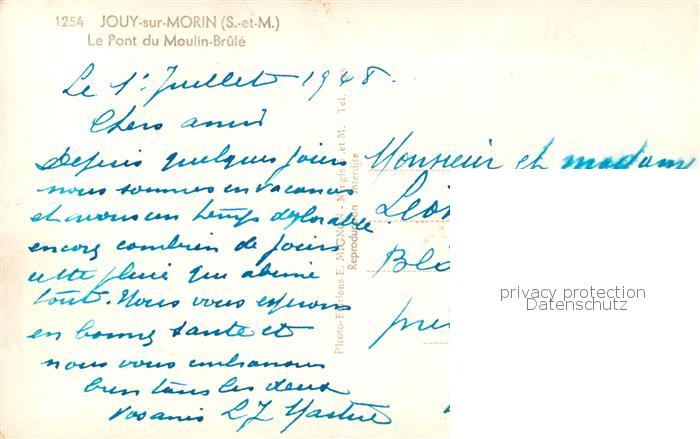 1254 JOUY-sur-MORIN (S.-et-M.)
Le Pont du Moulin-Brûlé
Le 1r Juillet 1948.
Chers amis
Depuis quelques jours
nous sommes en vacances
et avons un temps deplorable
encore combien de jours
cette pluie qui abime
tout. Nous vous esperons
en bonne sante et
nous vous embrassons
bien tous les deux
Vos amis L J
Photo-Editions E. MIGNON - Nangis S. et M. Tel.
Reproduction interdite
Monsieur et madam
Léon
privacy protection
Datenschutz